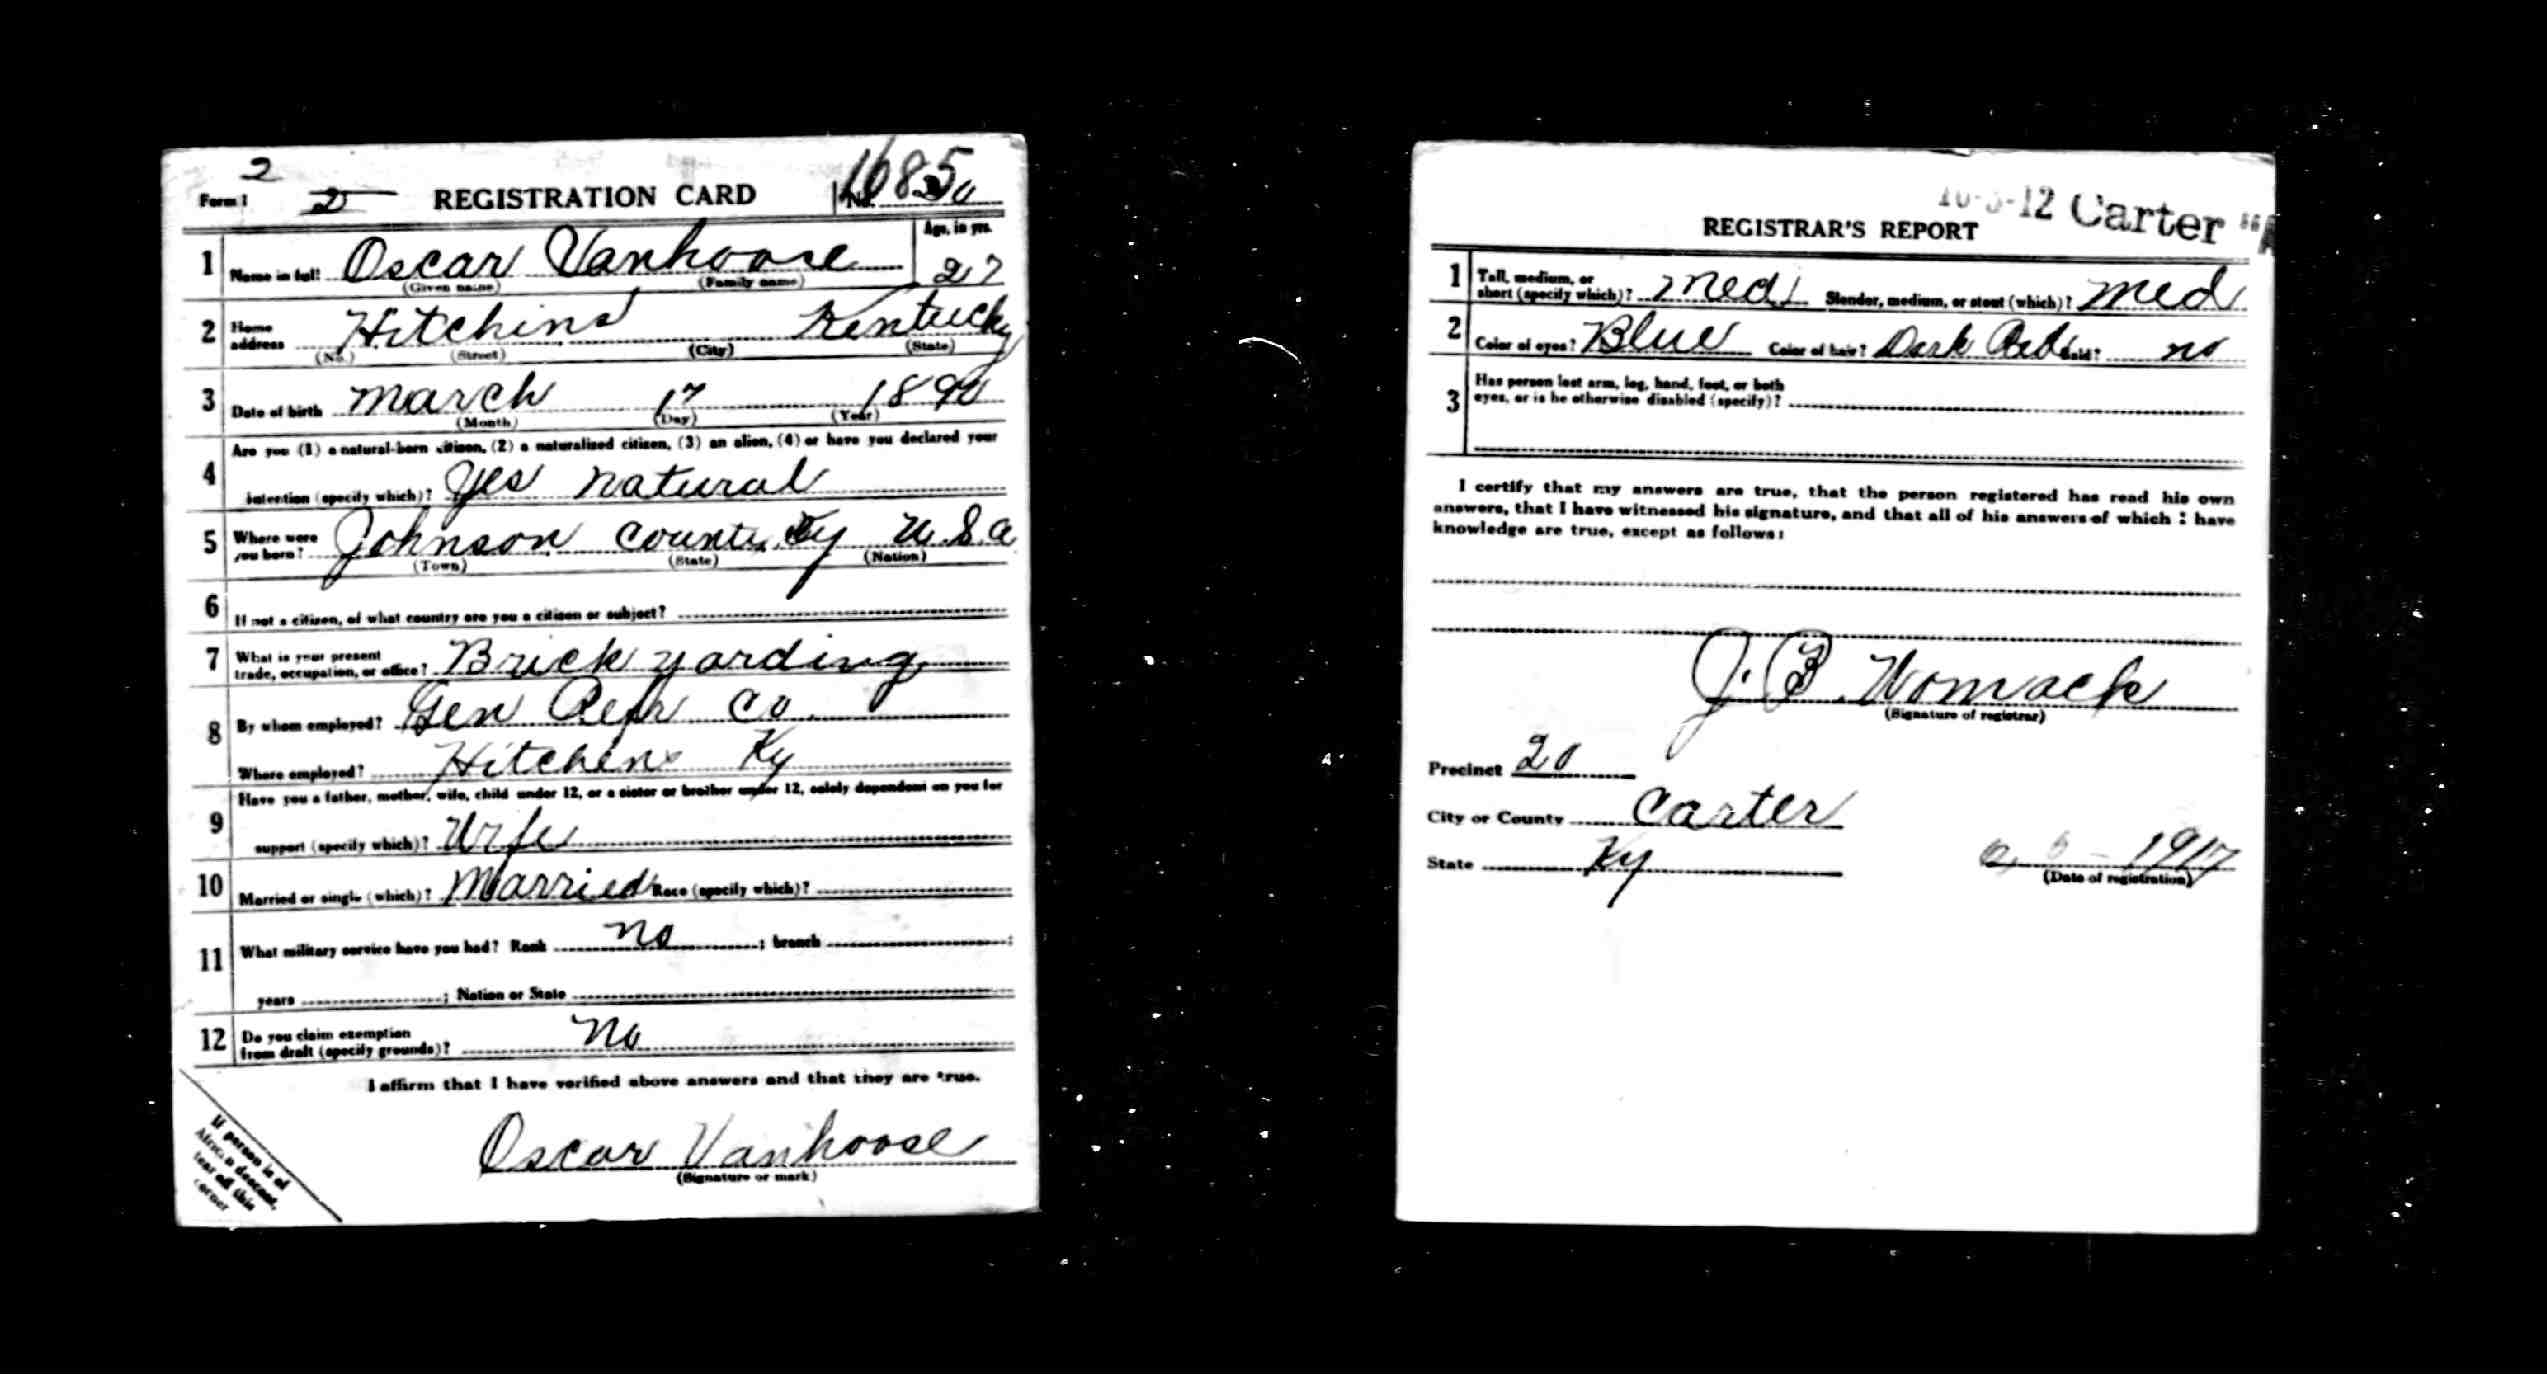 2
Form 1 2 REGISTRATION CARD No.
1 Name in full Oscar Vanhoose Age, in yrs. 27
(Given name) (Family name)
2 Home address Hitchins Kentucky
(No.) (Street) (City) (State)
3 Date of birth March 17 1890
(Month) (Day) (Year)
Are you (1) a natural-born citizen, (2) a naturalized citizen, (3) an alien, (4) or have you declared your
4 intention (specify which)? Yes natural
5 Where were you born? Johnson county Ky U.S.a
(Town) (State) (Nation)
6 If not a citizen, of what country are you a citizen or subject?
7 What is your present trade, occupation, or office? Brick yarding
8 By whom employed? Gen Refr Co
Where employed? Hitchens Ky
Have you a father, mother, wife, child under 12, or a sister or brother under 12, solely dependent on you for
9 support (specify which)? Wife
10 Married or single (which)? Married Race (specify which)?
11 What military service have you had? Rank no ; branch ;
years ; Nation or State
12 Do you claim exemption from draft (specify grounds)? No
I affirm that I have verified above answers and that they are true.
Oscar Vanhoose
(Signature or mark)
If person is of
African descent,
tear off this
corner
12 Carter
REGISTRAR'S REPORT
1 Tall, medium, or short (specify which)? Med Slender, medium, or stout (which)? Med
2 Color of eyes? Blue Color of hair? Dark Red Bald? no
3 Has person lost arm, leg, hand, foot, or both
eyes, or is he otherwise disabled (specify)?
I certify that my answers are true, that the person registered has read his own
answers, that I have witnessed his signature, and that all of his answers of which I have
knowledge are true, except as follows:
J. B. Womack
(Signature of registrar)
Precinct 20
City or County Carter
State Ky 1917
(Date of registration)